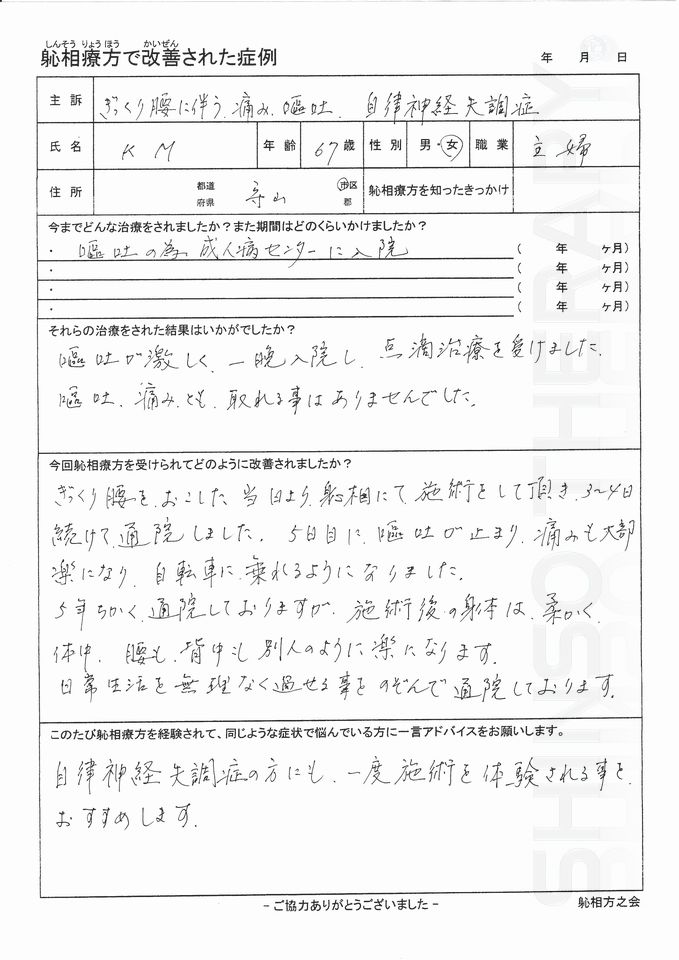 しんそう りょうほう かいぜん
躮相療方で改善された症例 年 月 日
主訴 ぎっくり腰に伴う、痛み、嘔吐、自律神経失調症
氏名 K M 年齢 67歳 性別 男・女 職業 主婦
住所 都道府県 守山 市区郡 躮相療方を知ったきっかけ
今までどんな治療をされましたか？また期間はどのくらいかけましたか？
・ 嘔吐の為、成人病センターに入院 ( 年 ヶ月)
・ ( 年 ヶ月)
・ ( 年 ヶ月)
・ ( 年 ヶ月)
それらの治療をされた結果はいかがでしたか？
嘔吐が激しく、一晩入院し、点滴治療を受けました。
嘔吐、痛み、とも、取れる事はありませんでした。
今回躮相療方を受けられてどのように改善されましたか？
ぎっくり腰を、おこした当日より、躮相にて施術をして頂き、3〜4日
続けて、通院しました。5日目に、嘔吐が止まり、痛みも大部
楽になり、自転車に、乗れるようになりました。
5年ちかく、通院しておりますが、施術後の身体は、柔かく、
体中、腰も、背中も別人のように楽になります。
日常生活を無理なく過せる事をのぞんで通院しております。
このたび躮相療方を経験されて、同じような症状で悩んでいる方に一言アドバイスをお願いします。
自律神経失調症の方にも、一度施術を体験される事を、
おすすめします。
- ご協力ありがとうございました -
躮相方之会
SHINSOTHERAPY